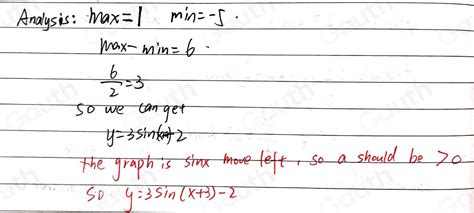 Analysis: max=1 min=-5.
max-min=6.
6/2=3
so we can get
y=3sin(x)-2
the graph is sinx move left, so a should be >0
so y=3sin(x+3)-2